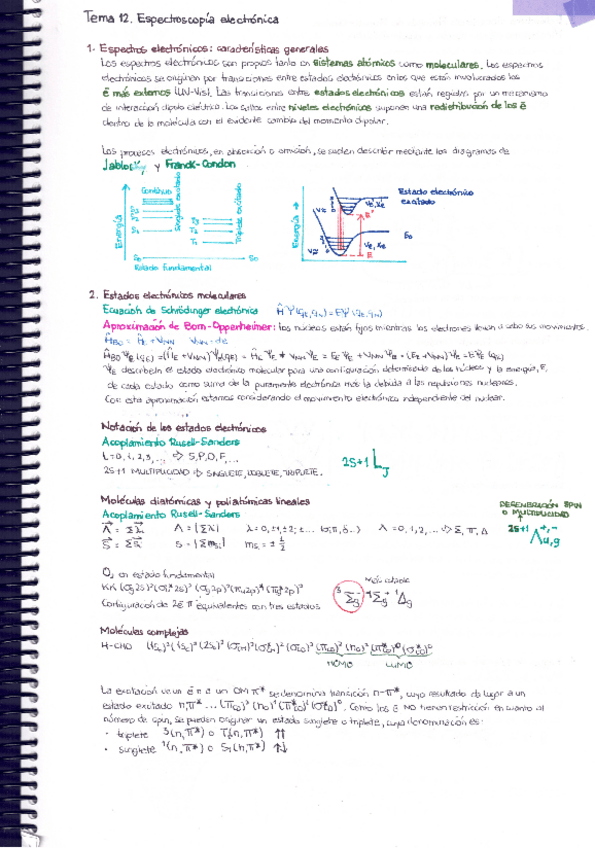 Tema 12. Espectroscopía electrónica
1. Espectros electrónicos: características generales
Los espectros electrónicos son propios tanto en sistemas atómicos como moleculares. Los espectros
electrónicos se originan por transiciones entre estados electrónicos en los que están involucrados los
ē más externos (UV-Vis). Las transiciones entre estados electrónicos están regidas por un mecanismo
de interacción dipolo eléctrico. Los saltos entre niveles electrónicos suponen una redistribución de los ē
dentro de la molécula con el evidente cambio del momento dipolar.
Los procesos electrónicos, en absorción o emisión, se suelen describir mediante los diagramas de
Jablonsky y Franck-Condon
Continuo
Energía
Singlete excitado
Triplete excitado
S₁
T₁
E₀
S₀
Estado fundamental
Energía →
Estado electrónico
excitado
E'
E₀
E
2. Estados electrónicos moleculares
Ecuación de Schrödinger electrónica
Aproximación de Born-Oppenheimer: Los núcleos están fijos mientras los electrones llevan a cabo sus movimientos.
describe el estado electrónico molecular para una configuración determinada de los núcleos y la energía, E,
de cada estado como suma de la puramente electrónica más la debida a las repulsiones nucleares.
Con esta aproximación estamos considerando el movimiento electrónico independiente del nuclear.
Notación de los estados electrónicos
Acoplamiento Rusell-Sanders
L=0, 1, 2, 3, ... ⇒ S, P, D, F, ...
2S+1 L J
2S+1 MULTIPLICIDAD ⇒ SINGLETE, DOBLETE, TRIPLETE.
Moléculas diatómicas y poliatómicas lineales
Acoplamiento Rusell-Sanders
DEGENERACIÓN SPIN
O MULTIPLICIDAD
Λ = |Σλ| λ = 0, ±1, ±2, ±... (σ, π, δ...) Λ = 0, 1, 2, ... ⇒ Σ, Π, Δ
2S+1 Λ +,- u,g
S = |Σms| ms = ± 1/2
O₂ en estado fundamental
más estable
³Σg⁻ ¹Σg⁺ ¹Δg
Configuración de 2ē π equivalentes con tres estados
Moléculas complejas
H-CHO
HOMO
LUMO
La excitación de un ē n a un OM π* se denomina transición n-π*, cuyo resultado da lugar a un
estado excitado n,π* ... Como los ē NO tienen restricción en cuanto al
número de spin, se pueden originar un estado singlete o triplete, cuya denominación es:
· triplete ³(n,π*) o T₁(n,π*) ↑↑
· singlete ¹(n,π*) o S₁(n,π*) ↑↓